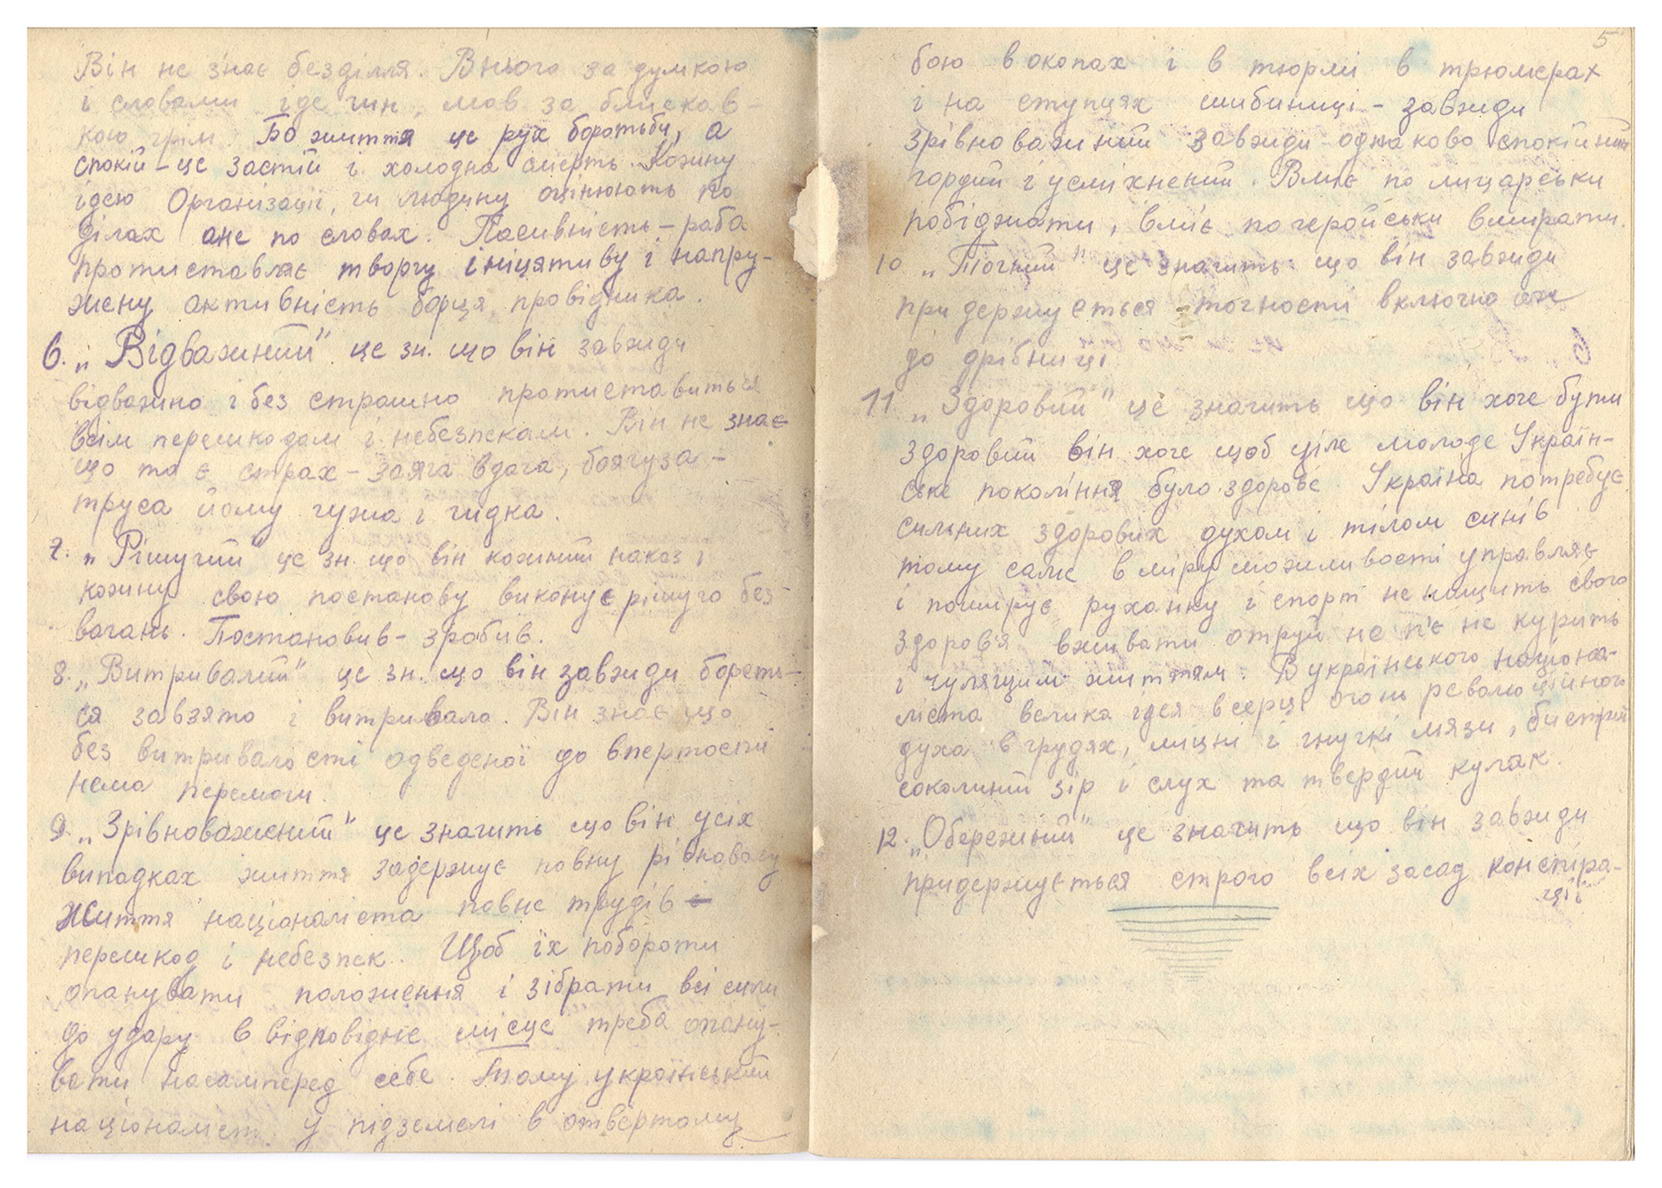 Він не знає безділля. В нього за думкою
і словами іде чин, мов за блискав-
кою грім. Бо життя це рух боротьби, а
спокій - це застій і холодна смерть. Кожну
ідею Організації, чи людину оцінюють по
ділах а не по словах. Пасивність - раба
протиставляє творчу ініціятиву і напру-
жену активність борця, провідника.
6. „Відважний" це зн. що він завжди
відважно і без страшно протиставиться
всім перешкодам і небезпекам. Він не знає
що то є страх - заяча вдача, боягуза -
труса йому чужа і гидка.
7. „Рішучий" це зн. що він кожний наказ і
кожну свою постанову виконує рішучо без
вагань. Постановив - зробив.
8. „Витривалий" це зн. що він завжди бореть-
ся завзято і витривало. Він знає що
без витривалості одведеної до впертости
нема перемоги.
9. „Зрівноважений" це значить що він усіх
випадках життя задержує повну рівновагу
Життя націоналіста повне трудів
перешкод і небезпек. Щоб їх побороти
опанувати положення і зібрати всі сили
до удару в відповідне місце треба опану-
вати насамперед себе. Тому український
націоналіст у підземелі в отвертому
5
бою в окопах і в тюрмі в трюмерах
і на ступцях шибениці - завжди
зрівноважиний завжди однаково спокійний
гордий і усміхнений. Вміє по лицарськи
побіджати, вміє по геройськи вмирати.
10 „Точний" це значить що він завжди
придержується точности включно аж
до дрібниці
11 „Здоровий" це значить що він хоче бути
здоровий він хоче щоб ціле молоде Україн-
ське покоління було здорове. Україна потребує
сильних здорових духом і тілом синів
тому саме в міру можливості управляє
і поширує руханку і спорт не нищить свого
здоровя вживати отруй не п'є не курить
і гулящим життям. В українського націона-
ліста велика ідея в серці огонь революційного
духа в грудях, міцні і гнучкі мязи, бистрий
соколиний зір і слух та твердий кулак.
12. „Обережний" це значить що він завжди
придержується строго всіх засад конспіра-
ції